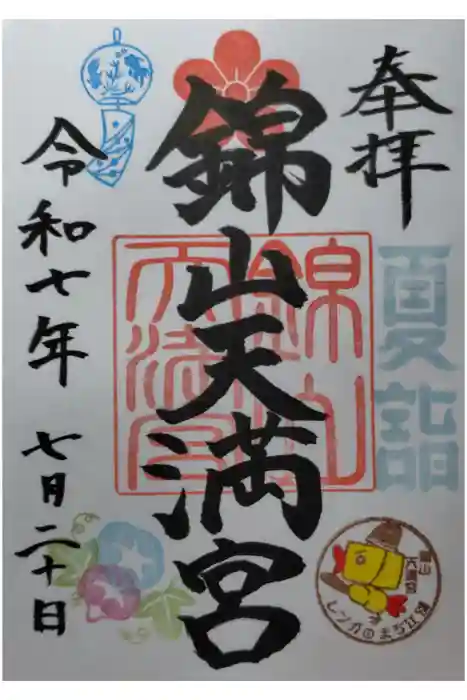 奉拝
夏詣
錦山天満宮
錦山天満宮
令和七年 七月二十日
錦山
天満宮
レンガのまち江別